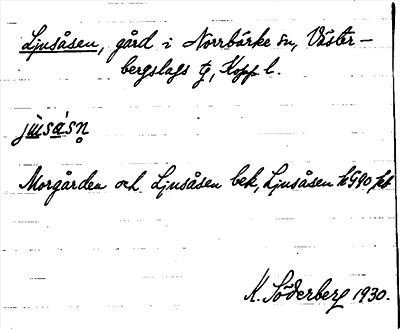 Ljusåsen, gård i Norrbärke sn, Väster-
bergslags tg, Kopp. l.
jùsàsn̥
Morgården och Ljusåsen bek, Ljusåsen
K. Söderberg 1930.